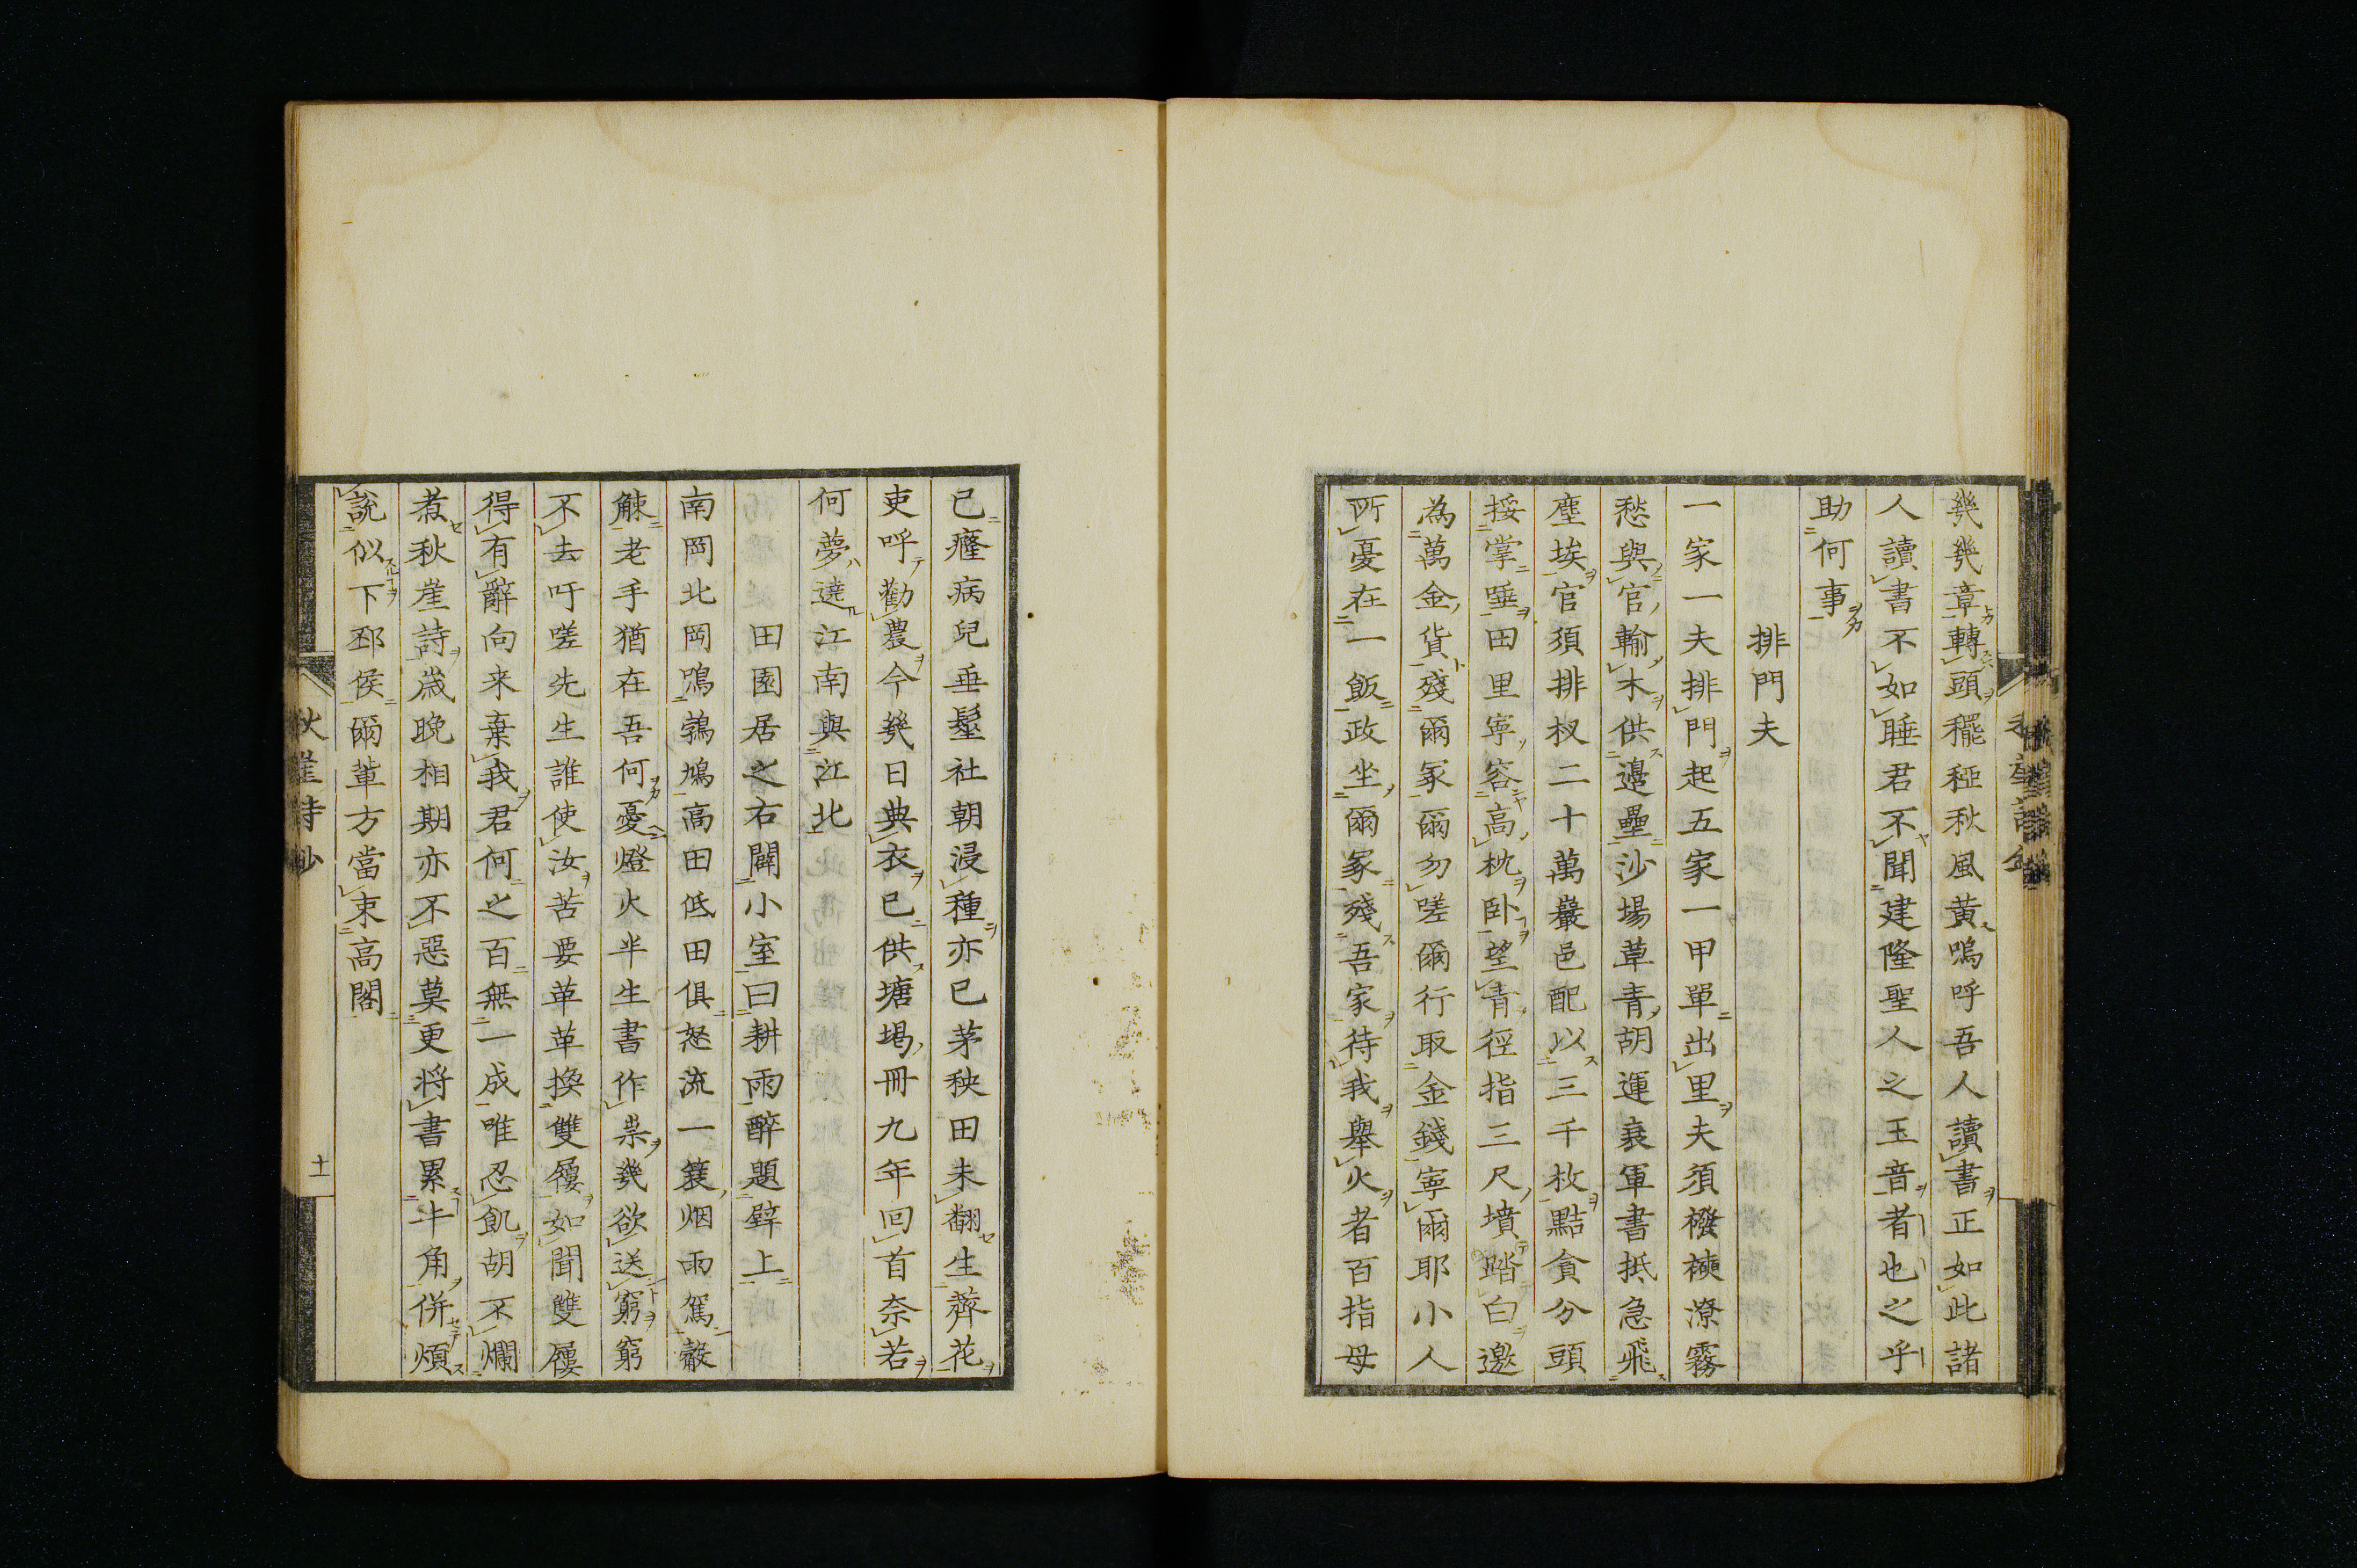 幾幾章轉頭䆉稏秋風黃嗚呼吾人讀書正如此諸
人讀書不如睡君不聞建隆聖人之玉音者也之乎
助何事
排門夫
一家一夫排門起五家一甲單出里夫須襏襫潦霧
愁與官輸木供邊壘沙場草青胡運衰軍書抵急飛
塵埃官須排杈二十萬巖邑配以三千枚點貪分頭
挼掌唾田里寧容高枕卧望青徑指三尺墳踏白邀
為萬金貨殘爾冢爾勿嗟爾行取金錢寧爾耶小人
所憂在一飯政坐爾冢殘吾家待我舉火者百指母
已癃病兒垂髫社朝浸種亦已茅秧田未翻生薺花
吏呼勸農今幾日典衣已供塘堨冊九年回首奈若
何夢遶江南與江北
田園居之右闢小室曰耕雨醉題壁上
南岡北岡鳴鵓鳩高田低田俱怒流一簑烟雨駕觳
觫老手猶在吾何憂燈火半生書作祟幾欲送窮窮
不去吁嗟先生誰使汝苦要革革換雙屨如聞雙屨
得有辭向来棄我君何之百無一成唯忍飢胡不爛
煮秋崖詩歳晚相期亦不惡莫更将書累牛角併煩
說似下邳侯爾輩方當束高閣
秋崖詩鈔
十一